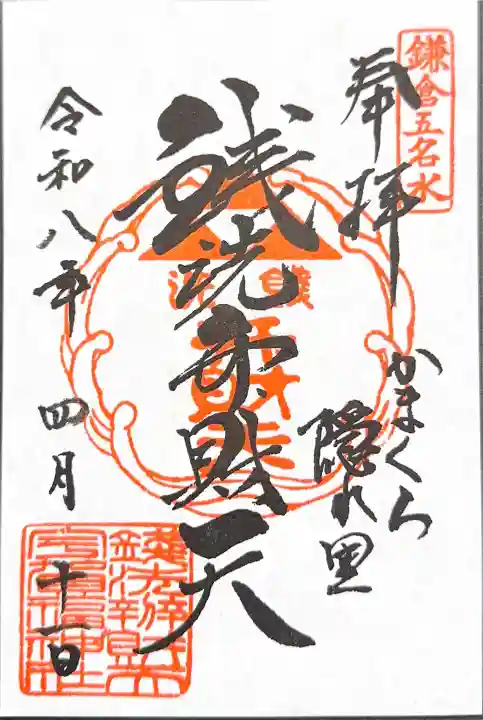 鎌倉五名水
奉拝
かまくら
隠れ里
銭洗弁財天
令和八年
四月
十一日